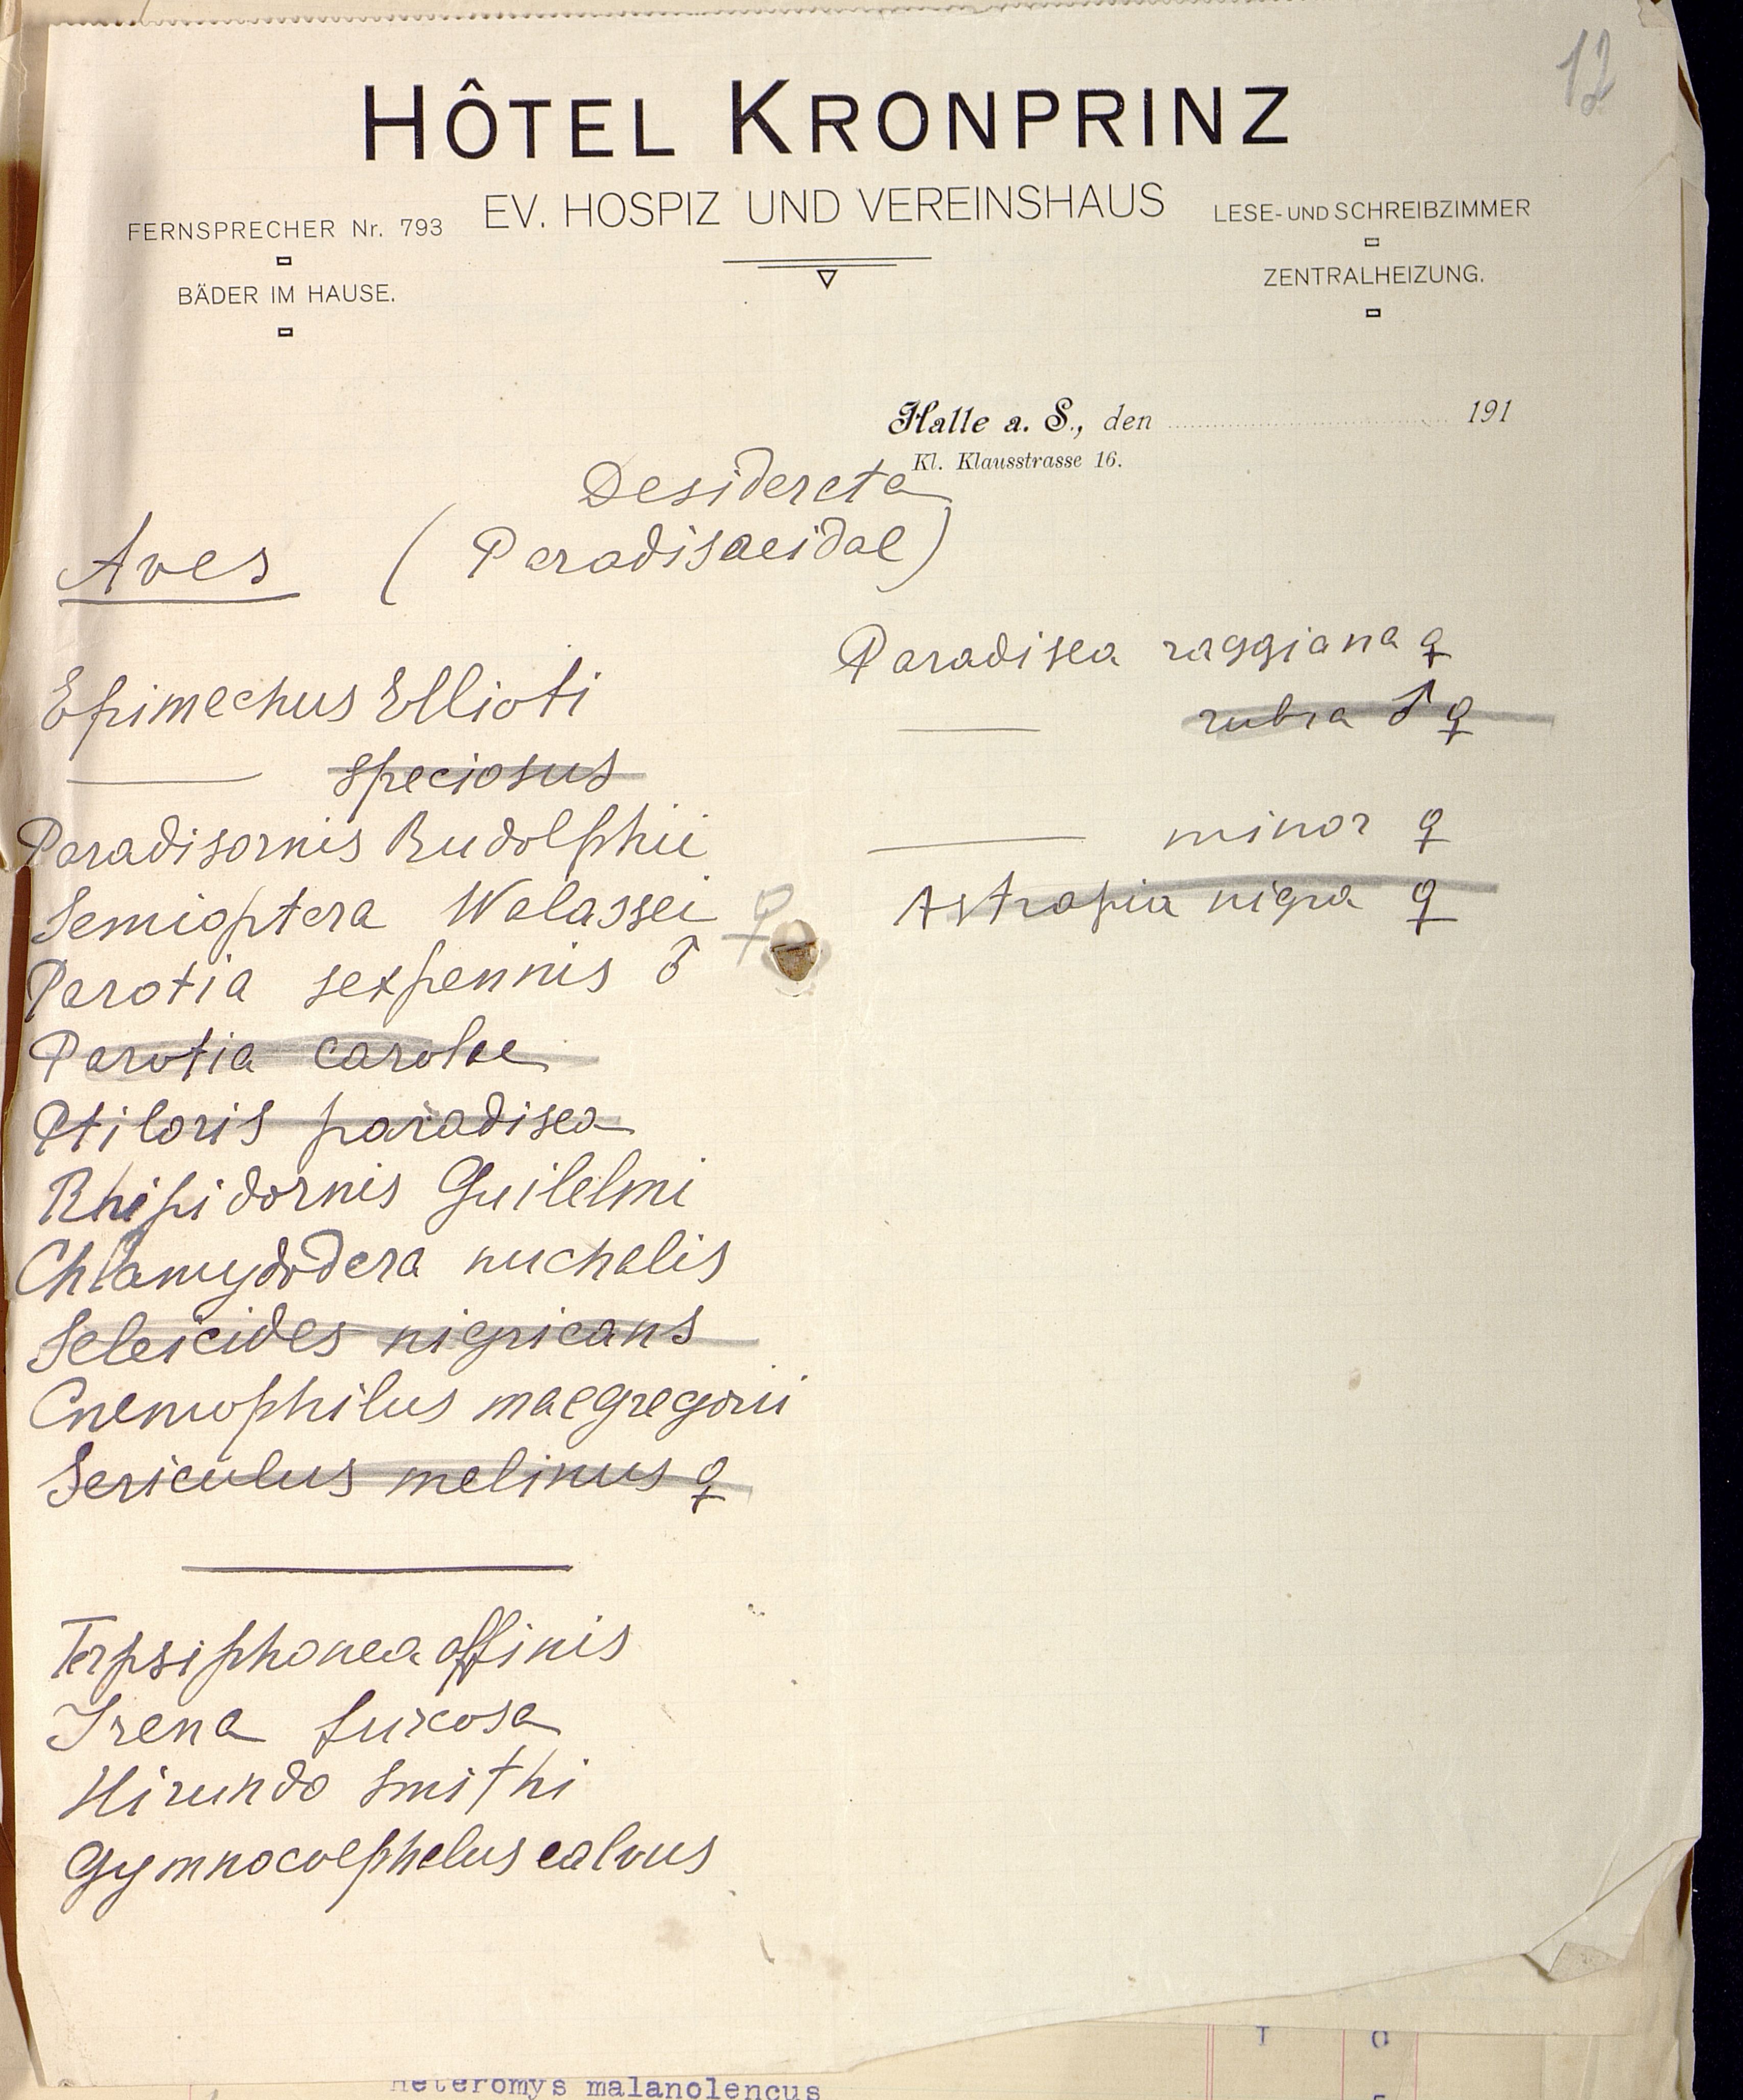 12
HÔTEL KRONPRINZ
EV. HOSPIZ UND VEREINSHAUS
FERNSPRECHER Nr. 793
BÄDER IM HAUSE.
LESE- UND SCHREIBZIMMER
ZENTRALHEIZUNG.
Halle a. S., den 191
Kl. Klausstrasse 16.
Desidereta
Aves ( Paradisaeidae)
Epimechus Ellioti
—— speciosus
Paradisornis Rudolphii
Semioptera Walassei ♀
Parotia sexpennis ♂
Parotia carolae
Ptiloris paradisea
Rhipidornis Guilelmi
Chlamydodera nuchalis
Seleicides nigricans
Cnemophilus macgregorii
Sericulus melinus ♀
Paradisea raggiana ♀
—— rubra ♂ ♀
—— minor ♀
Astrapia nigra ♀
Terpsiphonea affinis
Irena turcosa
Hirundo smithi
Gymnocoephelus calvus
T C
Heteromys malanolencus